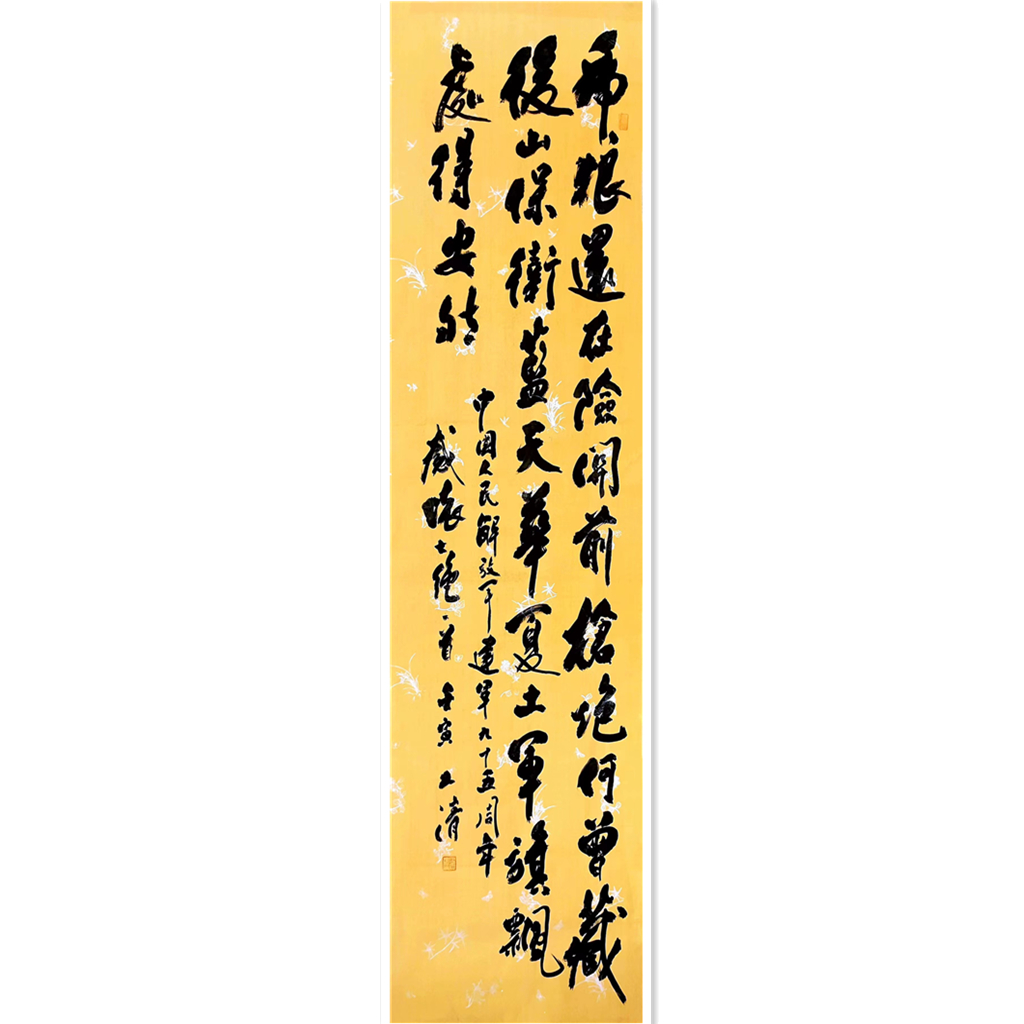 虎狼還在險關前槍炮何曾藏
後山保衛藍天華夏土軍旗飄
處得安然
中国人民解放军建軍九十五周年
感 七絕一首 壬寅 清